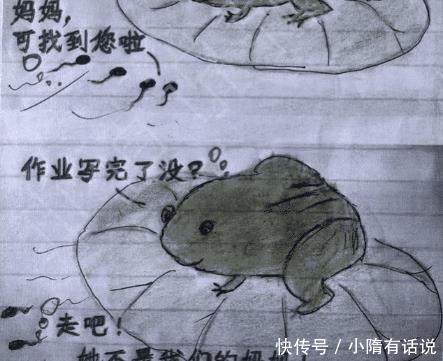 妈妈,
可找到您啦
作业写完了没?
走吧!
她不是我们的妈
快传号 / 小隋有话说